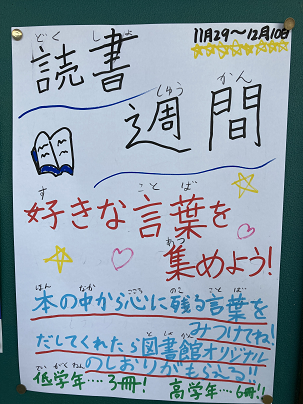 11月29～12月10日
どくしょ
読書
しゅうかん
週間
す ことば
好きな言葉を
あつ
集めよう！
ほん なか こころ のこ ことば
本の中から心に残る言葉を
みつけてね！
としょかん
だしてくれたら図書館オリジナル
のしおりがもらえる！！
ていがくねん こうがくねん
低学年‥‥3冊！ 高学年‥‥6冊！！